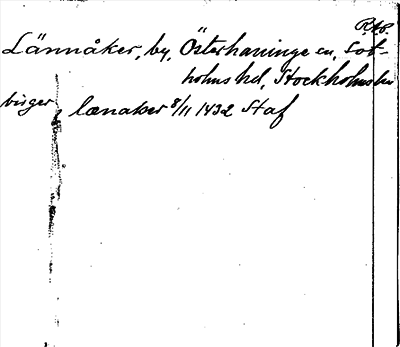 RAP.
Lännåker, by, Österhaninge sn, Sot-
holms hd, Stockholms län
birger lænaker 8/11 1432 Staf